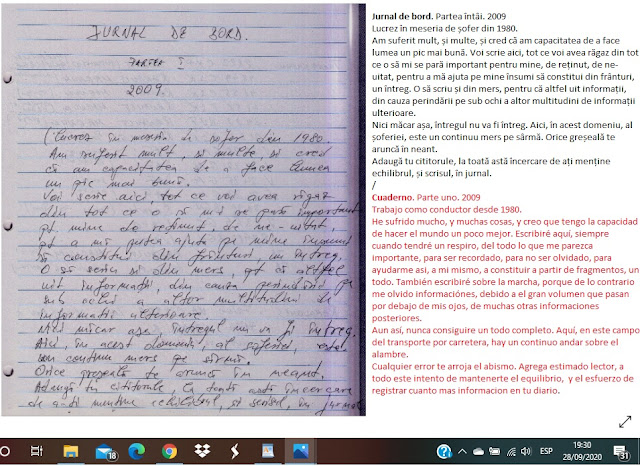 JURNAL DE BORD.
PARTEA I
2009.
(Lucrez în meseria de șofer din 1980.
Am suferit mult, și multe, și cred
că am capacitatea de a face lumea
un pic mai bună.
Voi scrie aici, tot ce voi avea răgaz
din tot ce o să mi se pară important
pt mine de reținut de ne-uitat,
pt a mă putea ajuta pe mine însumi
să constitui din frînturi un întreg.
O să scriu și din mers, pt că altfel
uit informații, din cauza perindării pe
sub ochii a altor multitudini de
informații ulterioare.
Nici măcar așa, întregul nu va fi întreg.
Aici, în acest domeniu, al șoferiei, este
un continuu mers pe sîrmă.
Orice greșeală te aruncă în neant.
Adaugă tu cititorule, la toată astă încercare
de ați menține echilibrul, și scrisul, în jurnal
Jurnal de bord. Partea întâi. 2009
Lucrez în meseria de șofer din 1980.
Am suferit mult, și multe, și cred că am capacitatea de a face
lumea un pic mai bună. Voi scrie aici, tot ce voi avea răgaz din tot
ce o să mi se pară important pentru mine, de reținut, de ne-
uitat, pentru a mă ajuta pe mine însumi să constitui din frânturi,
un întreg. O să scriu și din mers, pentru că altfel uit informații,
din cauza perindării pe sub ochi a altor multitudini de informații
ulterioare.
Nici măcar așa, întregul nu va fi întreg. Aici, în acest domeniu, al
șoferiei, este un continuu mers pe sârmă. Orice greșeală te
aruncă în neant.
Adaugă tu cititorule, la toată astă încercare de ați menține
echilibrul, și scrisul, în jurnal.
/
Cuaderno. Parte uno. 2009
Trabajo como conductor desde 1980.
He sufrido mucho, y muchas cosas, y creo que tengo la capacidad
de hacer el mundo un poco mejor. Escribiré aquí, siempre
cuando tendré un respiro, del todo lo que me parezca
importante, para ser recordado, para no ser olvidado, para
ayudarme asi, a mi mismo, a constituir a partir de fragmentos, un
todo. También escribiré sobre la marcha, porque de lo contrario
me olvido informaciónes, debido a el gran volumen que pasan
por debajo de mis ojos, de muchas otras informaciones
posteriores.
Aun así, nunca consiguire un todo completo. Aquí, en este campo
del transporte por carretera, hay un continuo andar sobre el
alambre.
Cualquier error te arroja el abismo. Agrega estimado lector, a
todo este intento de mantenerte el equilibrio, y el esfuerzo de
registrar cuanto mas informacion en tu diario.
18
ESP
19:30
28/09/2020
31